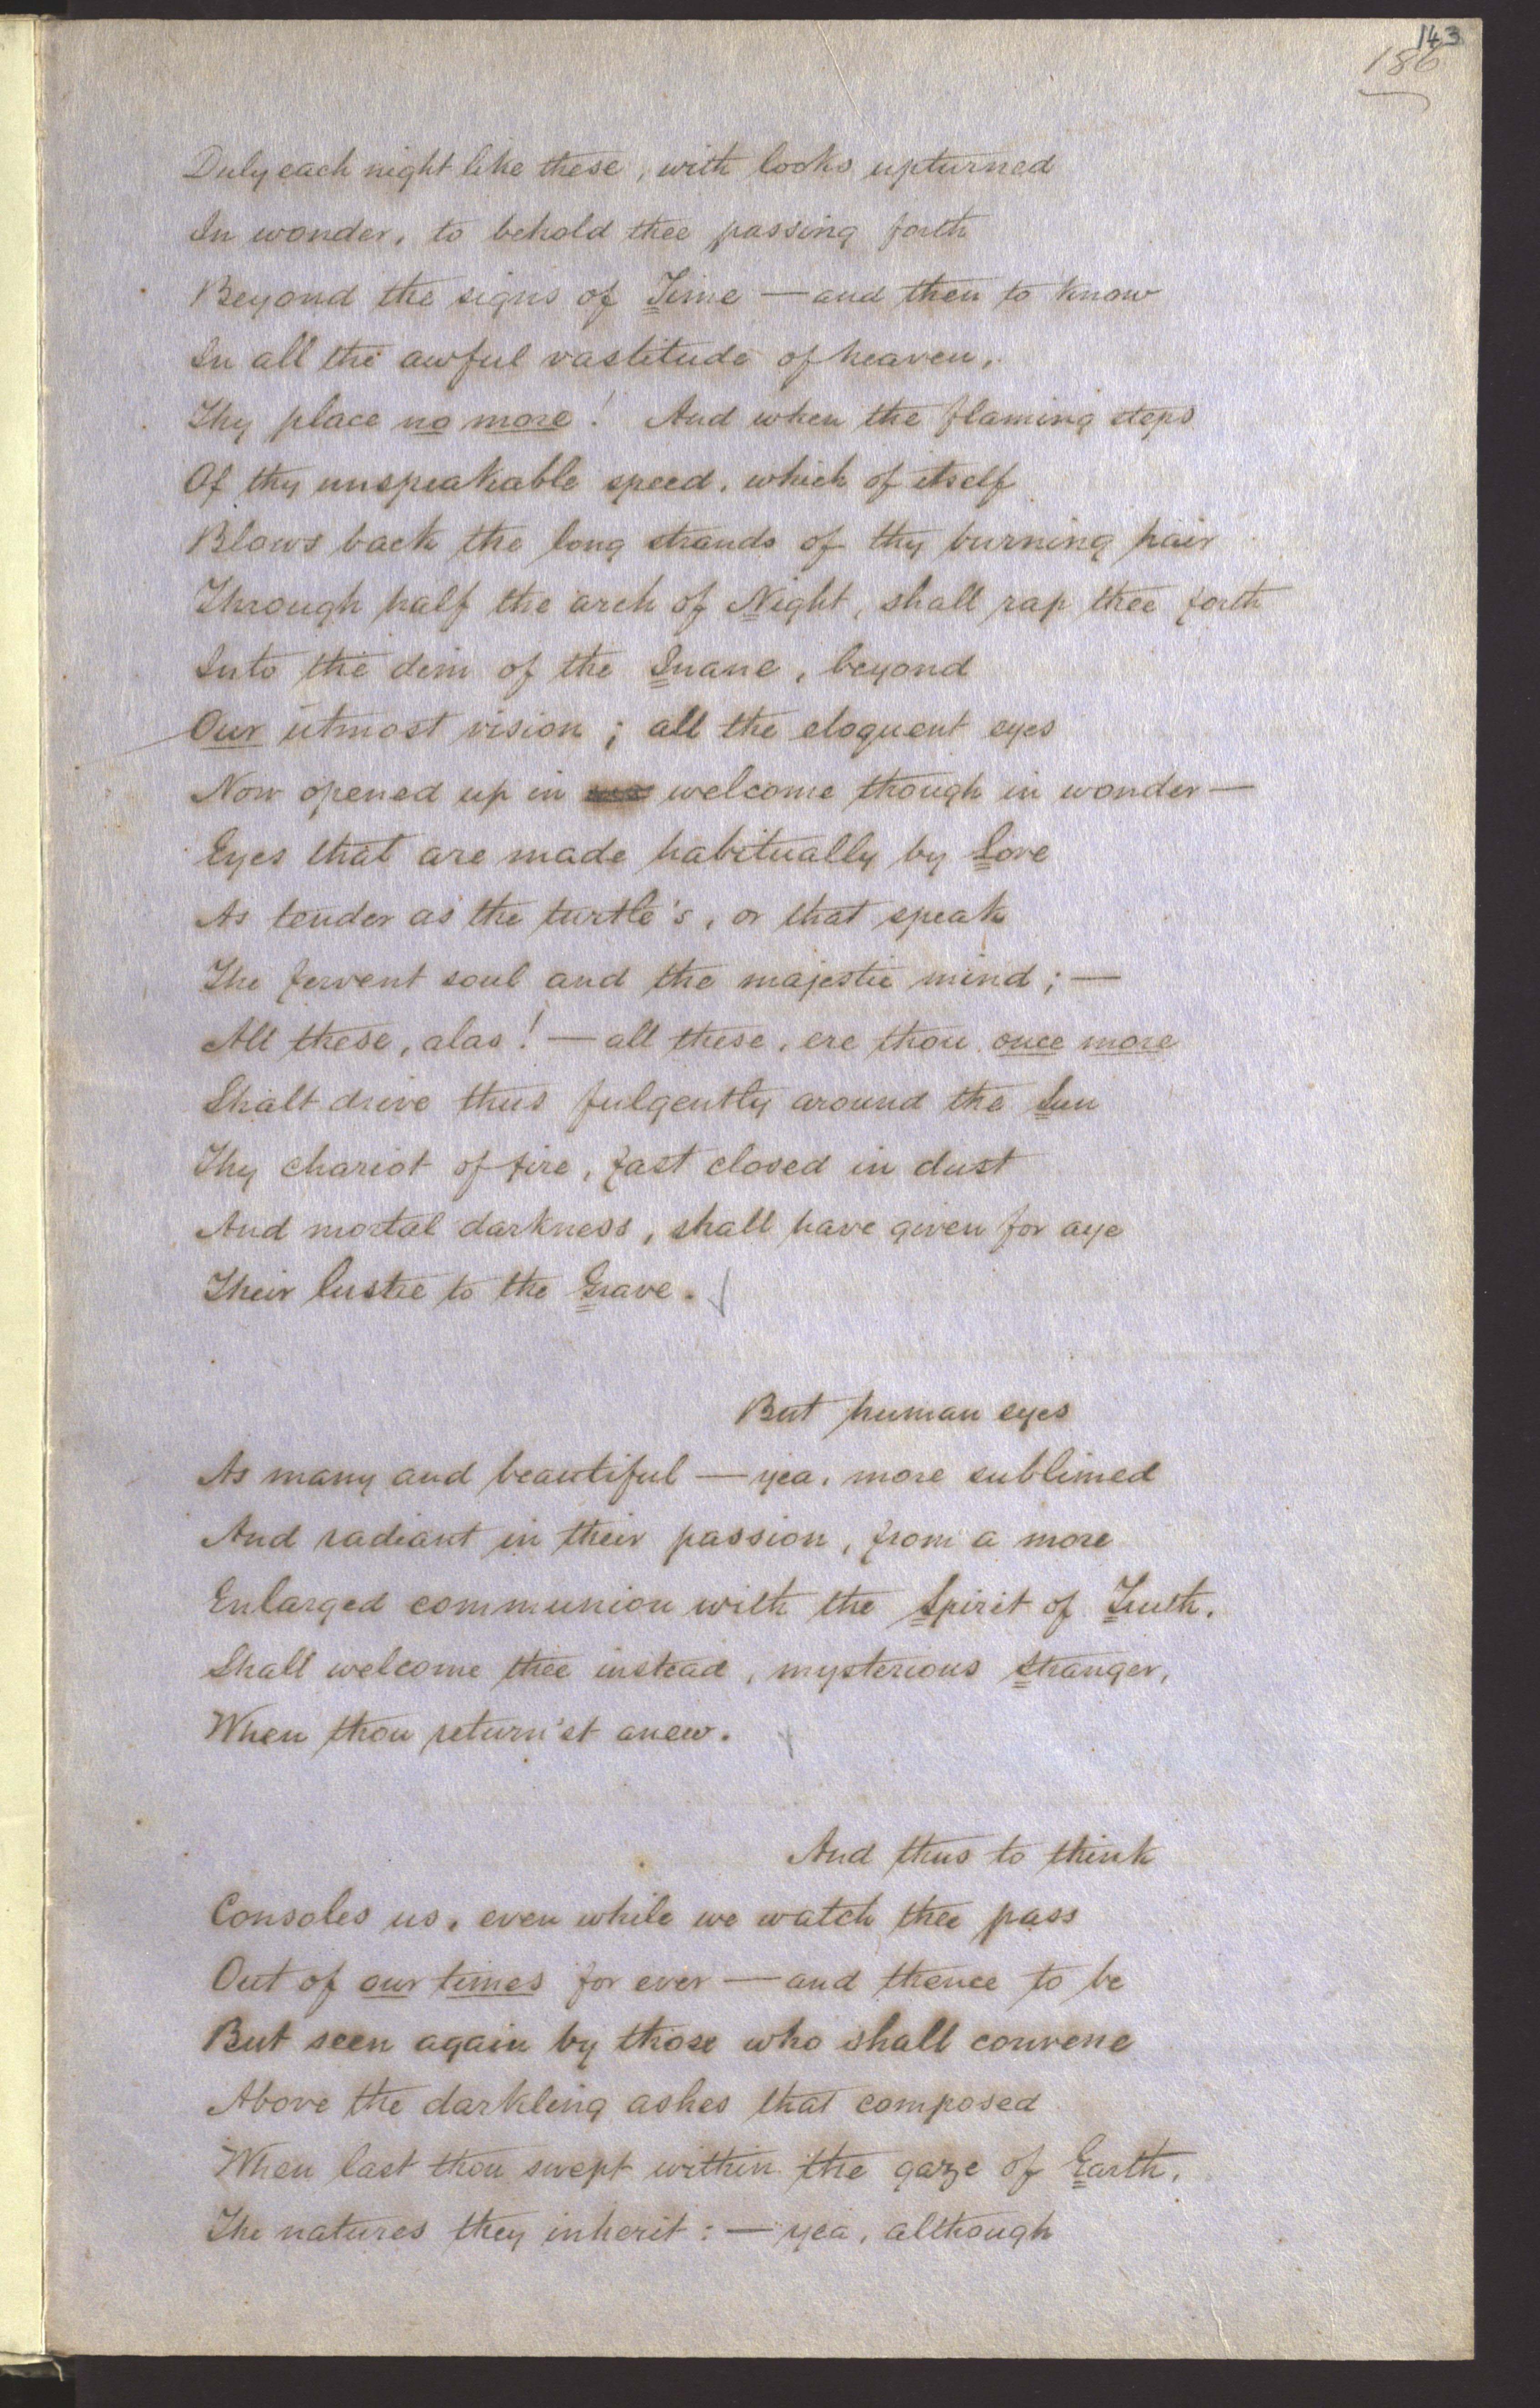 143
186
Duly each night like these, with looks upturned
In wonder, to behold thee passing forth
Beyond the signs of Time — and then to know
In all the awful vastitude of heaven,
Thy place no more! And when the flaming steps
Of thy unspeakable speed, which of itself
Blows back the long strands of thy burning hair
Through half the arch of Night, shall rap thee forth
Into the dim of the Inane, beyond
Our utmost vision; all the eloquent eyes
Now opened up in welcome though in wonder —
Eyes that are made habitually by Love
As tender as the turtle's, or that speak
The fervent soul and the majestic mind; —
All these, alas! — all these, ere thou once more
Shalt drive thus fulgently around the Sun
Thy chariot of fire, fast closed in dust
And mortal darkness, shall have given for aye
Their lustre to the Grave.
But human eyes
As many and beautiful — yea, more sublimed
And radiant in their passion, from a more
Enlarged communion with the Spirit of Truth,
Shall welcome thee instead, mysterious Stranger,
When thou return'st anew.
And thus to think
Consoles us, even while we watch thee pass
Out of our times for ever — and thence to be
But seen again by those who shall convene
Above the darkling ashes that composed
When last thou swept within the gaze of Earth,
The natures they inherit: — yea, although